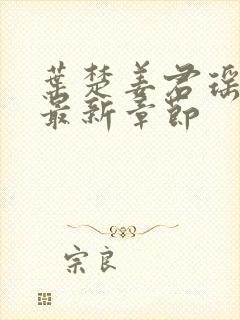 葉楚姜君瑶
最新章節
宗良